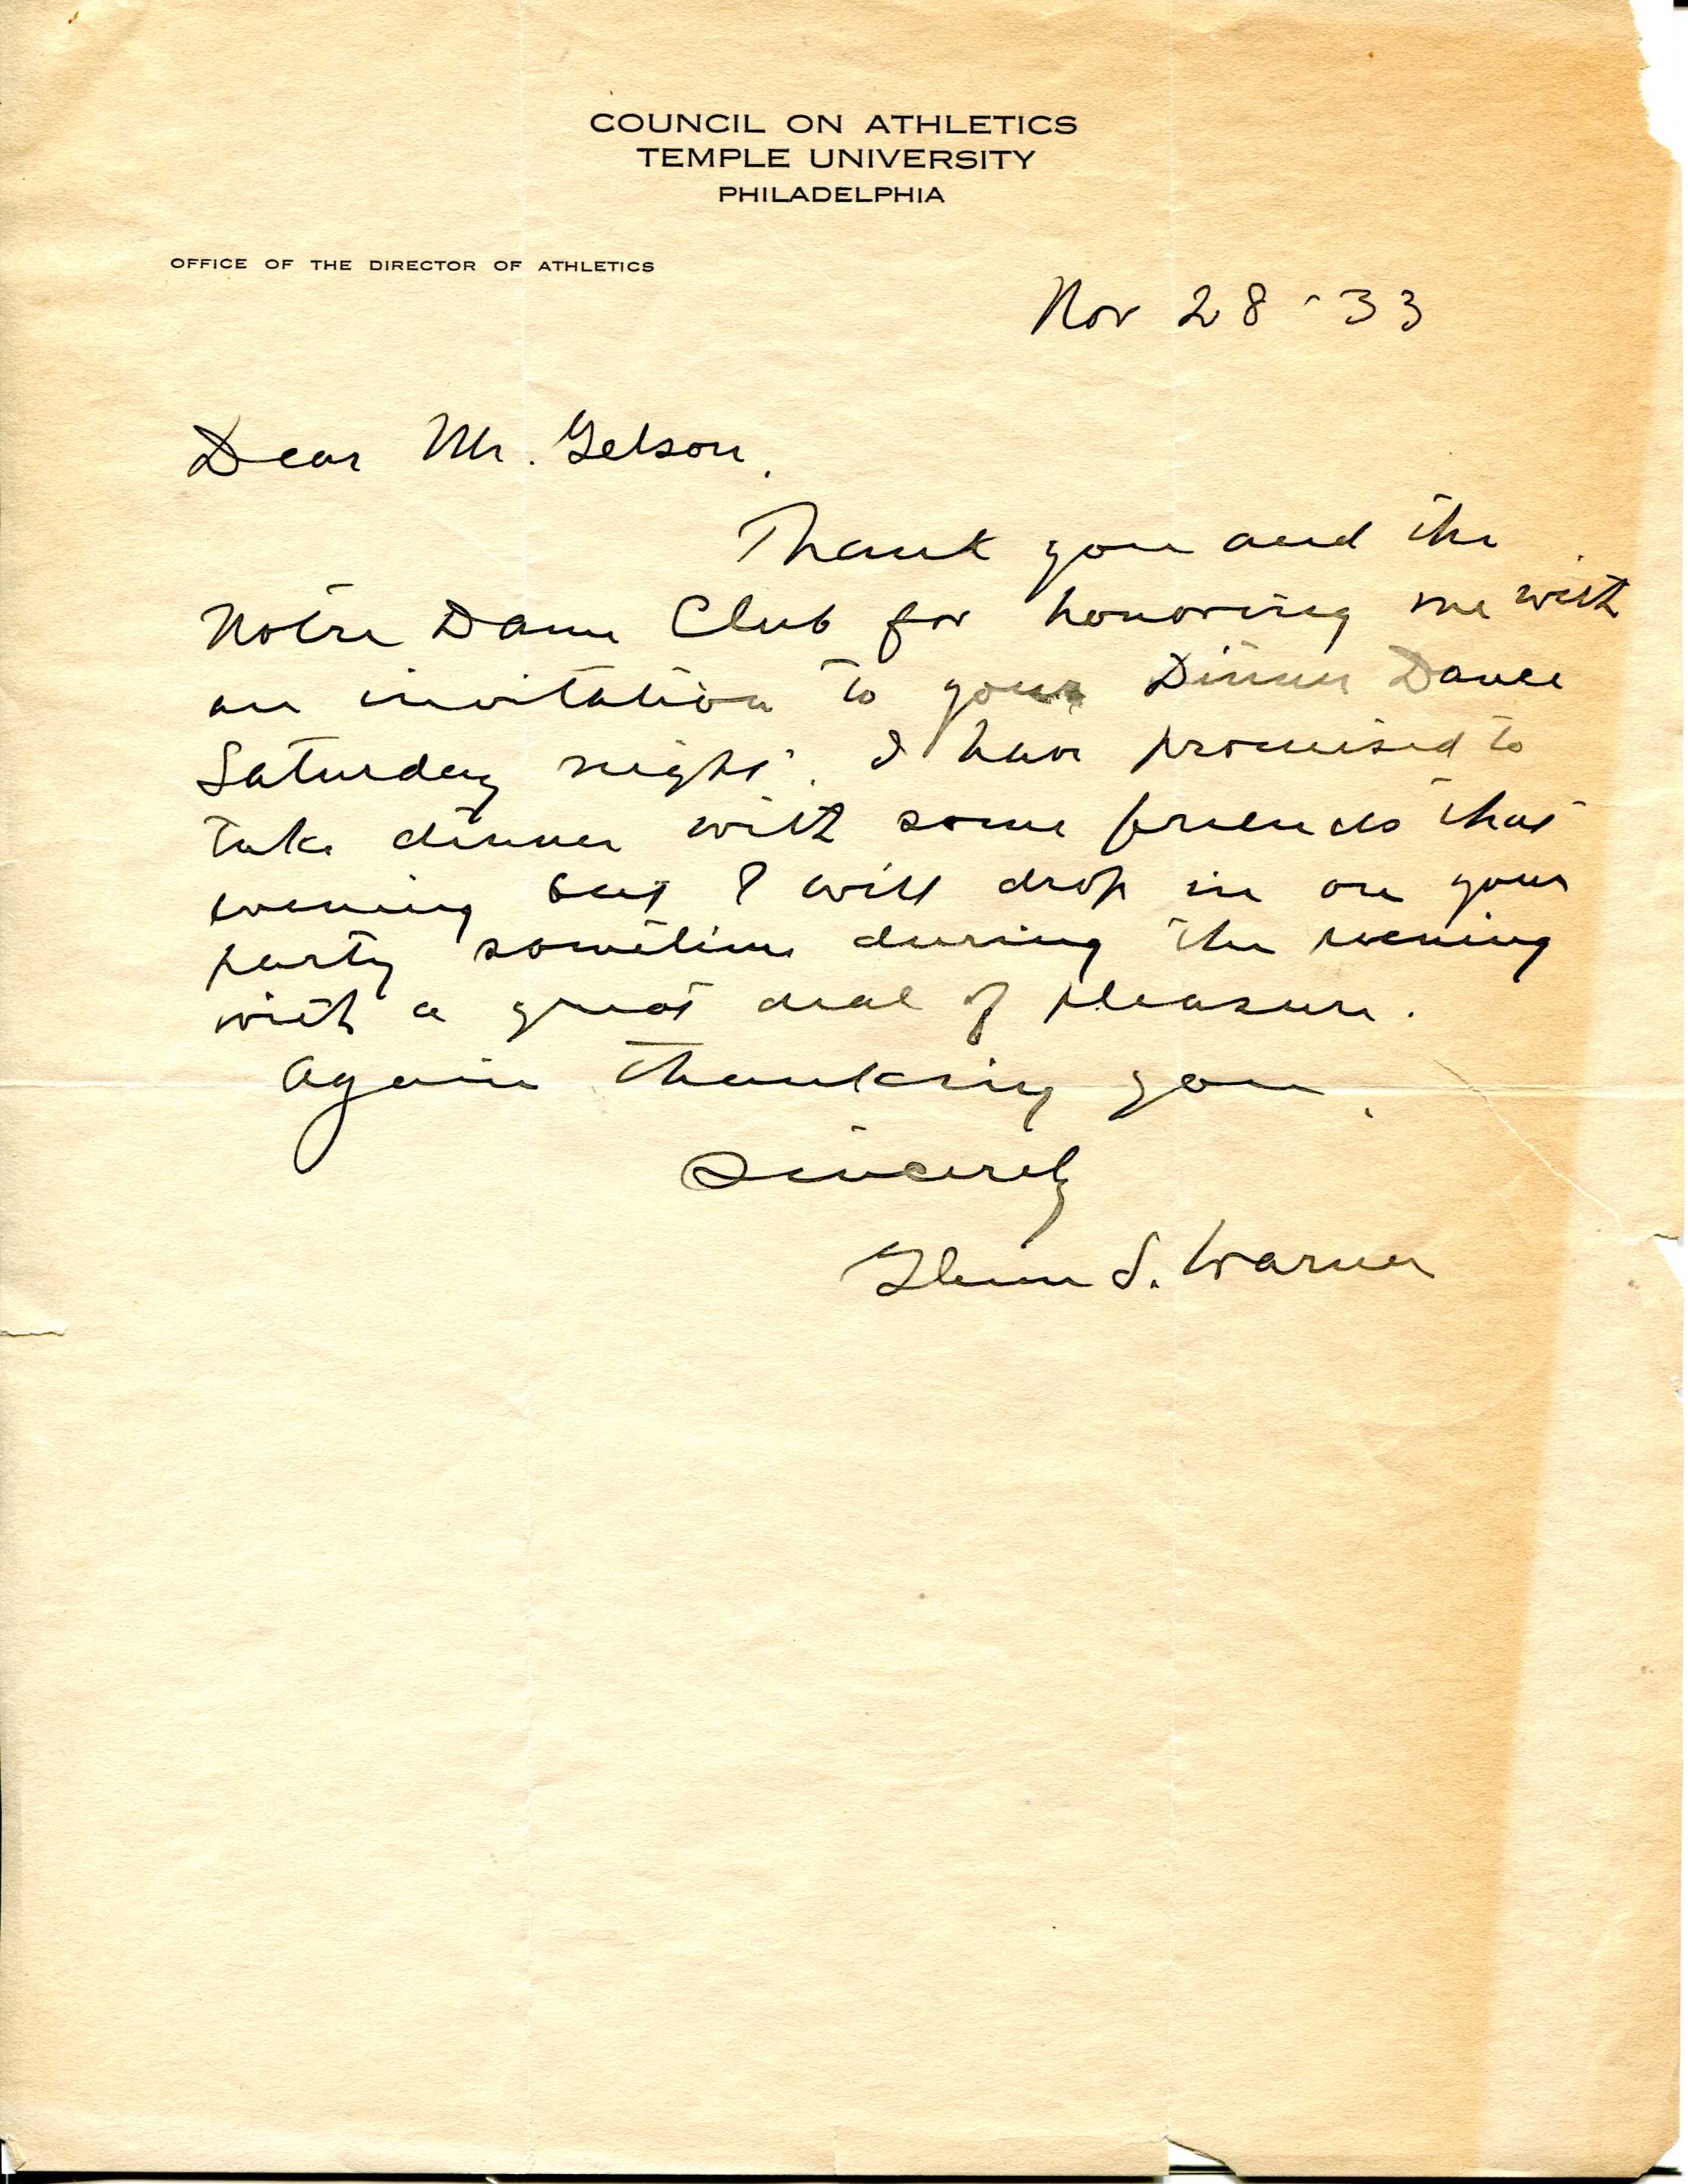 COUNCIL ON ATHLETICS
TEMPLE UNIVERSITY
PHILADELPHIA
OFFICE OF THE DIRECTOR OF ATHLETICS
Nov 28-33
Dear Mr. Gelson,
Thank you and the
Notre Dame Club for honoring me with
an invitation to your Dinner Dance
Saturday night. I have promised to
take dinner with some friends that
evening but I will drop in on your
party sometime during the evening
with a great deal of pleasure.
Again thanking you,
Sincerely
Glenn S. Warner